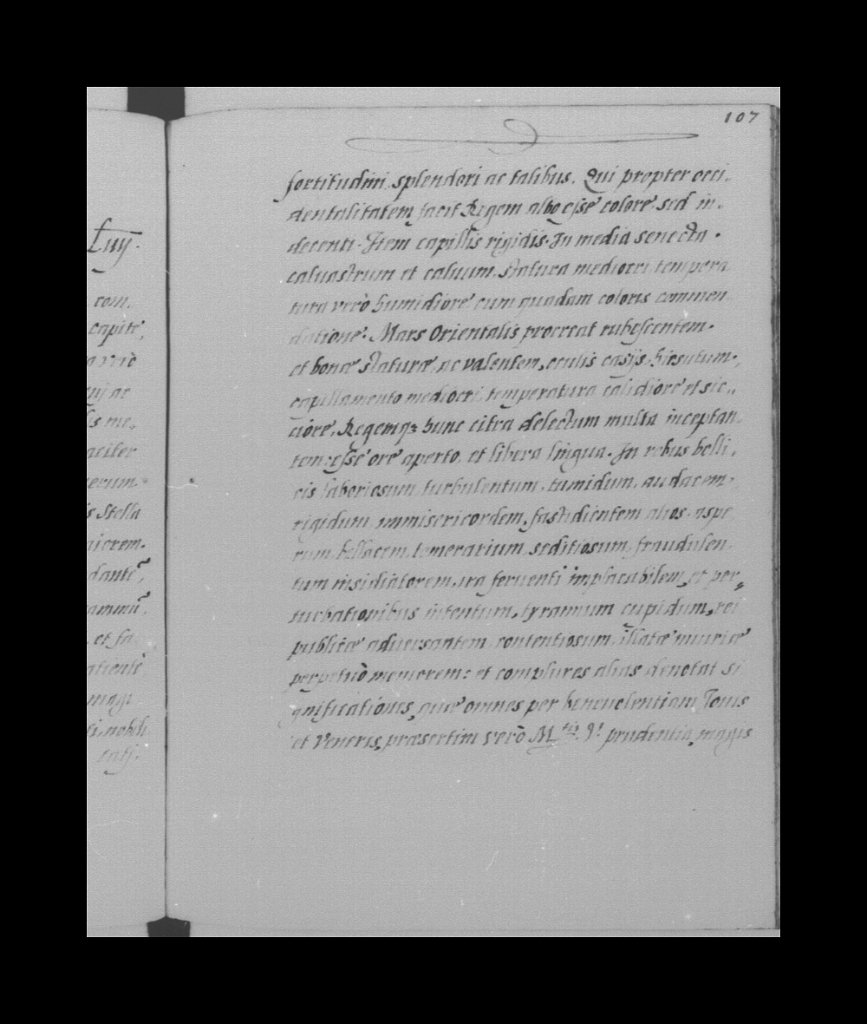 107
fortitudini, splendori ac talibus. Qui propter occi-
dentalitatem facit Regem albo esse colore sed in-
decenti. Item capillis rigidis. In media senecta.
caluastrum et caluum, statura mediocri tempera
tura verò humidiore cum quadam coloris commen
datione. Mars Orientalis procreat rubescentem.
et bonæ staturæ, ac valentem, oculis casijs, hirsutum,
capillamento mediocri, temperatura calidiore et sic-
ciore, Regemq; hunc citra delectum multa inceptan
tem: esse ore aperto, et libera lingua. In rebus belli,
cis laboriosum, turbulentum, tumidum, audacem,
rigidum, immisericordem, fastidientem alios, aspe
rum, bellacem, temerarium, seditiosum, fraudulen
tum insidiatorem, ira feruenti implacabilem, et per-
turbationibus intentum, tyrannum cupidum, rei
publicæ aduersantem, contentiosum, illatæ iniuriæ
perpetuò memorem: et complures alias denotat si
gnificationes, quæ omnes per beneuolentiam Iouis
et Veneris, præsertim verò M.tis V. prudentia, magis
Luy.
com.
capite,
ac
me,
Stella
dante,
et
nobili